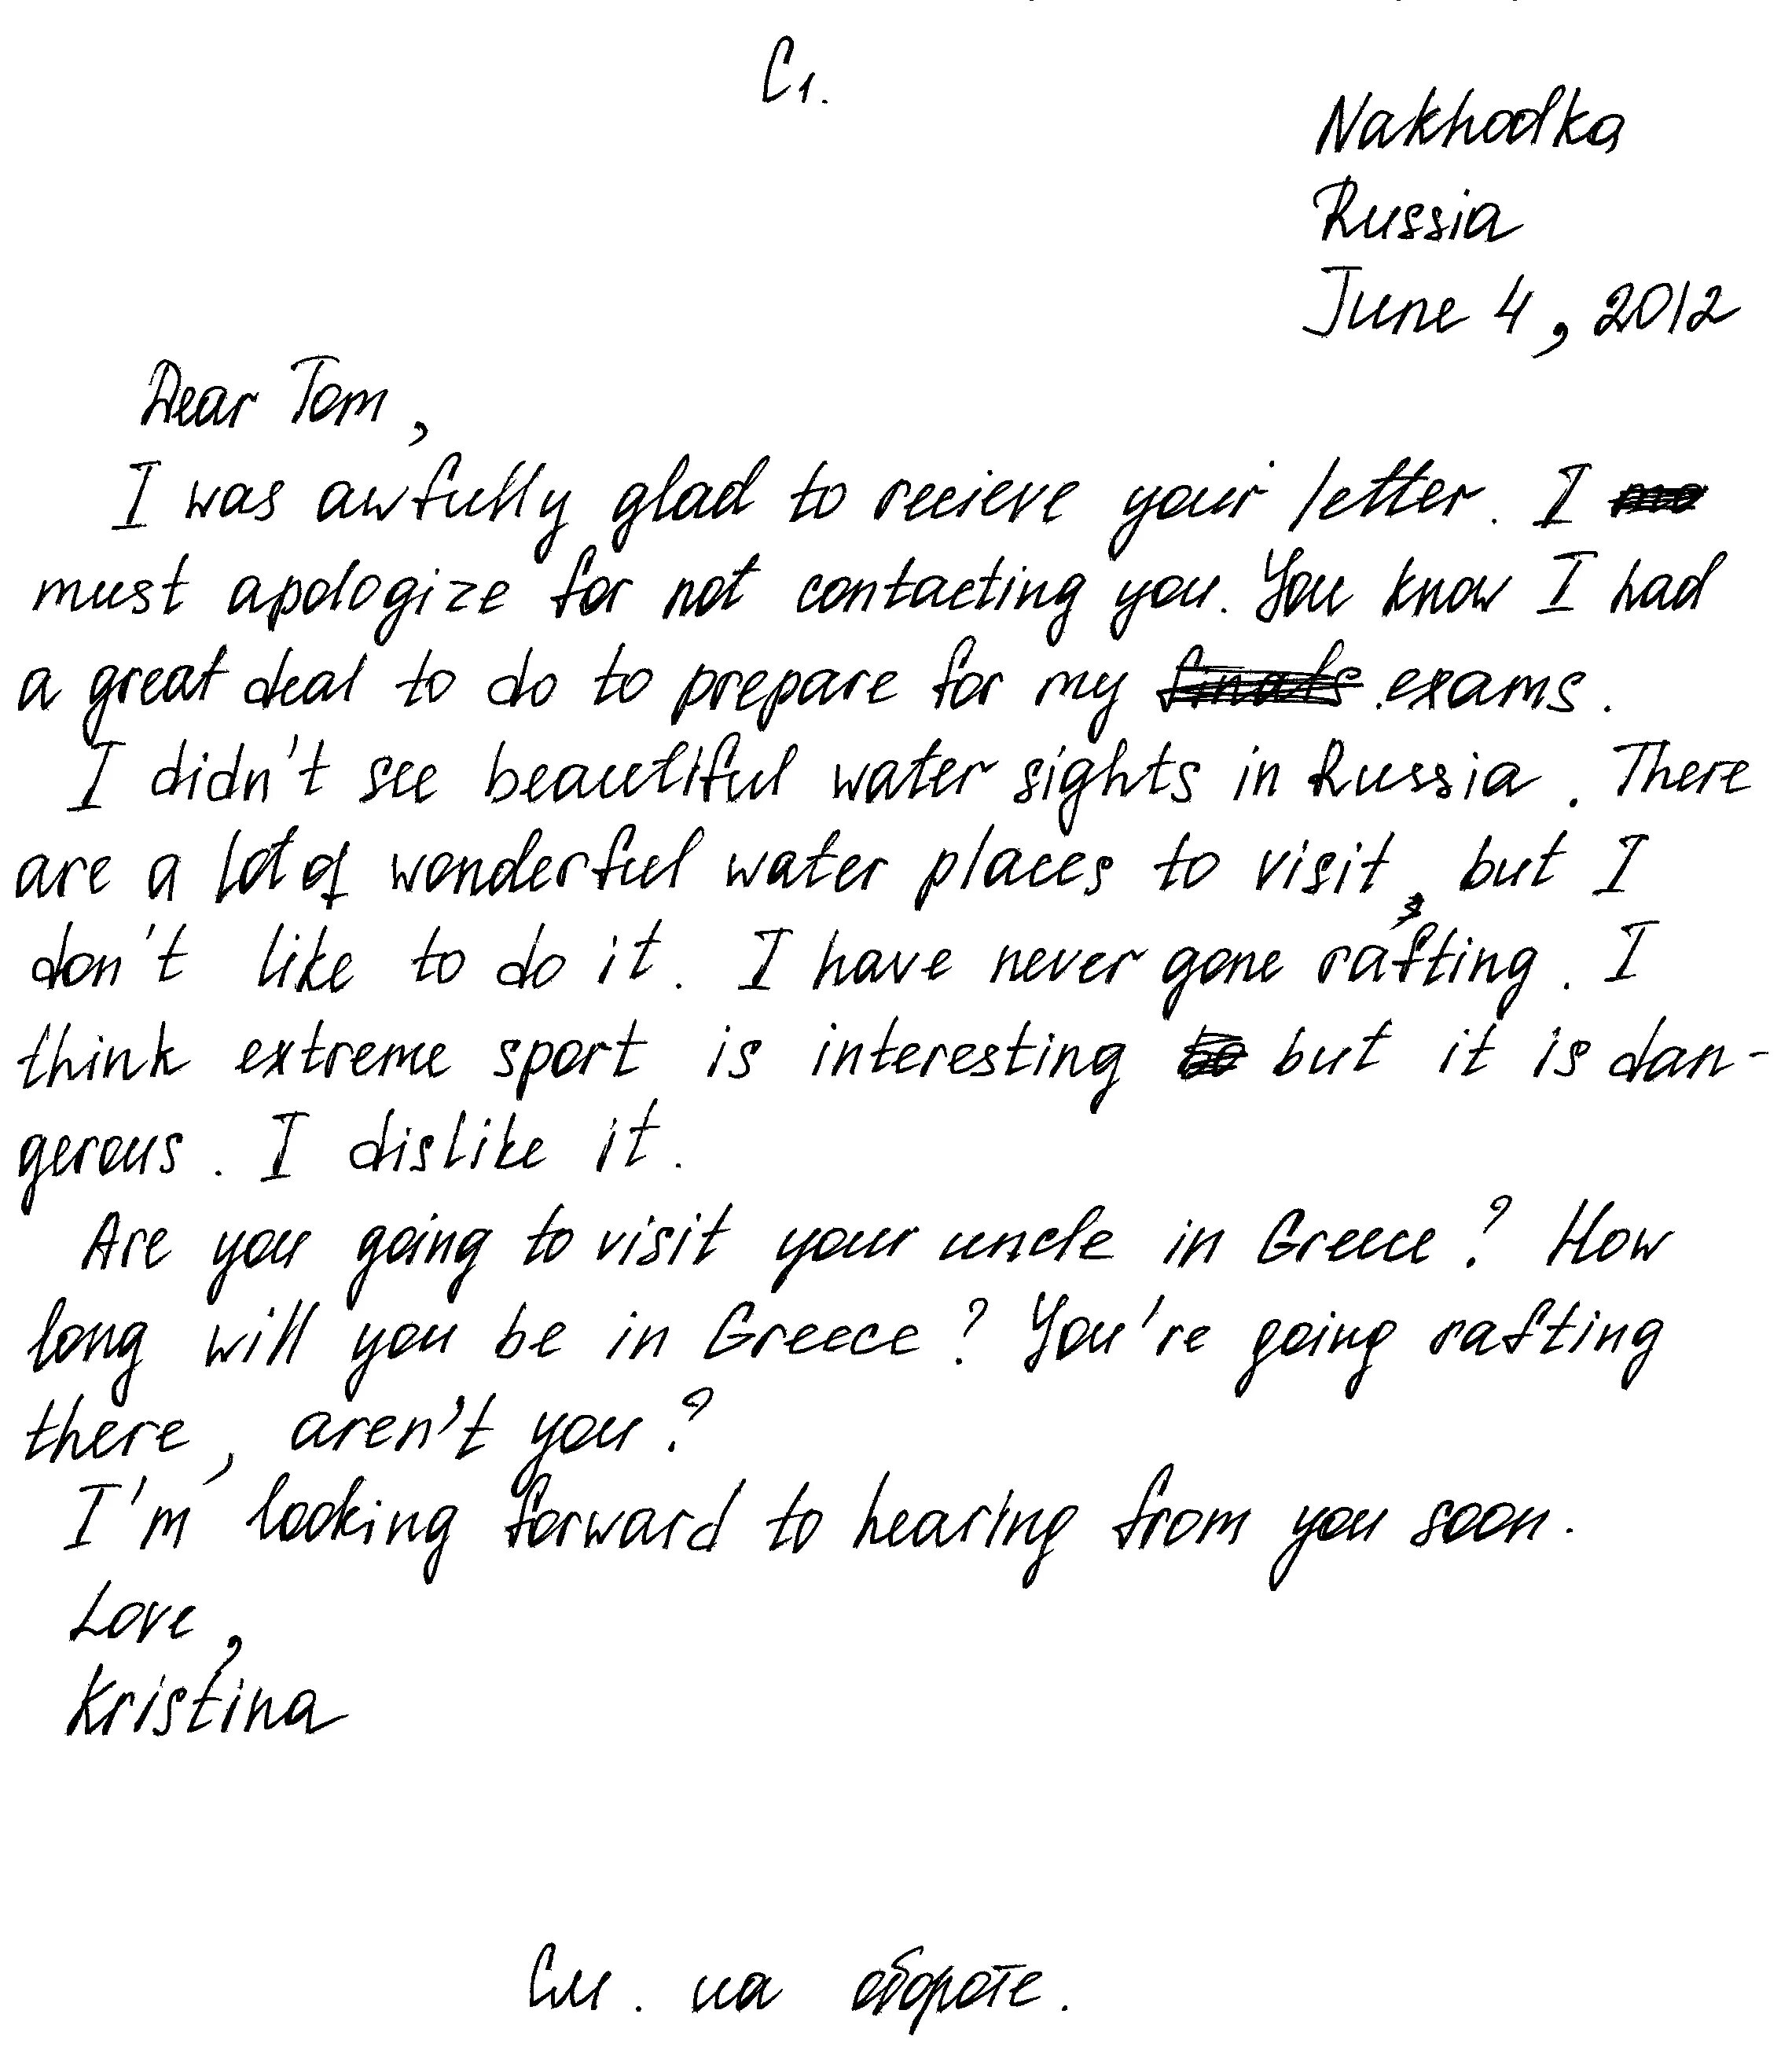 C1.
Nakhodka
Russia
June 4, 2012
Dear Tom,
I was awfully glad to recieve your letter. I
must apologize for not contacting you. You know I had
a great deal to do to prepare for my exams.
I didn't see beautiful water sights in Russia. There
are a lot of wonderful water places to visit, but I
don't like to do it. I have never gone rafting. I
think extreme sport is interesting but it is dan-
gerous. I dislike it.
Are you going to visit your uncle in Greece? How
long will you be in Greece? You're going rafting
there, aren't you?
I'm looking forward to hearing from you soon.
Love,
Kristina
См. на обороте.